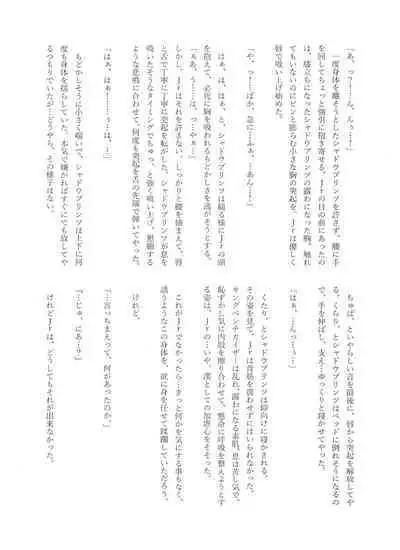 「あ、つ…！…ん、んぅ…！」
一度身体を離そうとしたシャドウプリンツを許さず、腰に手
を回してちょっと強引に抱き寄せる。Ｊｒの目の前にあったの
は、膝立ちになったシャドウプリンツの露わになった胸。触れ
てもいないのにピンと膨らむ小さな胸の突起を、Ｊｒは優しく
唇で吸い上げ始めた。
「や、つ…！…ばか、急に…ふぁ、…あん…！」
はぁ、は、はぁ、と、シャドウプリンツは縋る様にＪｒの頭
を抱えて、必死に胸を吸われるもどかしさを逃がそうとする。
「ぁあ、う……は、…やぁ…」
しかし、Ｊｒはそれを許さない。しっかりと腰を捕まえて、唇
と舌で丁寧に丁寧に突起を転がした。シャドウプリンツが息を
吸いたそうなタイミングでちゅっ、と強く吸い上げ、懇願する
ような悲鳴に合わせて、何度も突起を舌の先端で弾いてやった。
「はぁ、はぁ……ぅ…は、…」
もどかしそうに小さく喘いで、シャドウプリンツは上下に何
度も身体を揺らしていた。本気で嫌がればすぐにでも放してや
るつもりでいたが…どうやら、その様子はない。
ちゅぱ、といやらしい音を最後に、唇から突起を解放してや
る。くらり、とシャドウプリンツはベッドに倒れそうになるの
で、手を伸ばし、支え…ゆっくりと寝かせてやった。
「はぁ、…んっ…ぅ…」
くたり、とシャドウプリンツは仰向けに寝かされる。
その姿を見て、Ｊｒは背筋を震わせずにはいられなかった。
キングベンチカイザーは乱れ、露わになる素肌。息は苦し気で、
恥ずかし気に内股を擦り合わせて、懸命に呼吸を整えようとす
る姿は、Ｊｒの…いや、漢としての加虐心をそそった。
これがＪｒでなかったら…きっと何かを気にする事もなく、
誘うようなこの身体を、欲に身を任せて蹂躙していただろう。
けれど、
「…言っちまえって、何があったのか。」
「…じゅ、にあ…？」
けれどＪｒは、どうしてもそれが出来なかった。